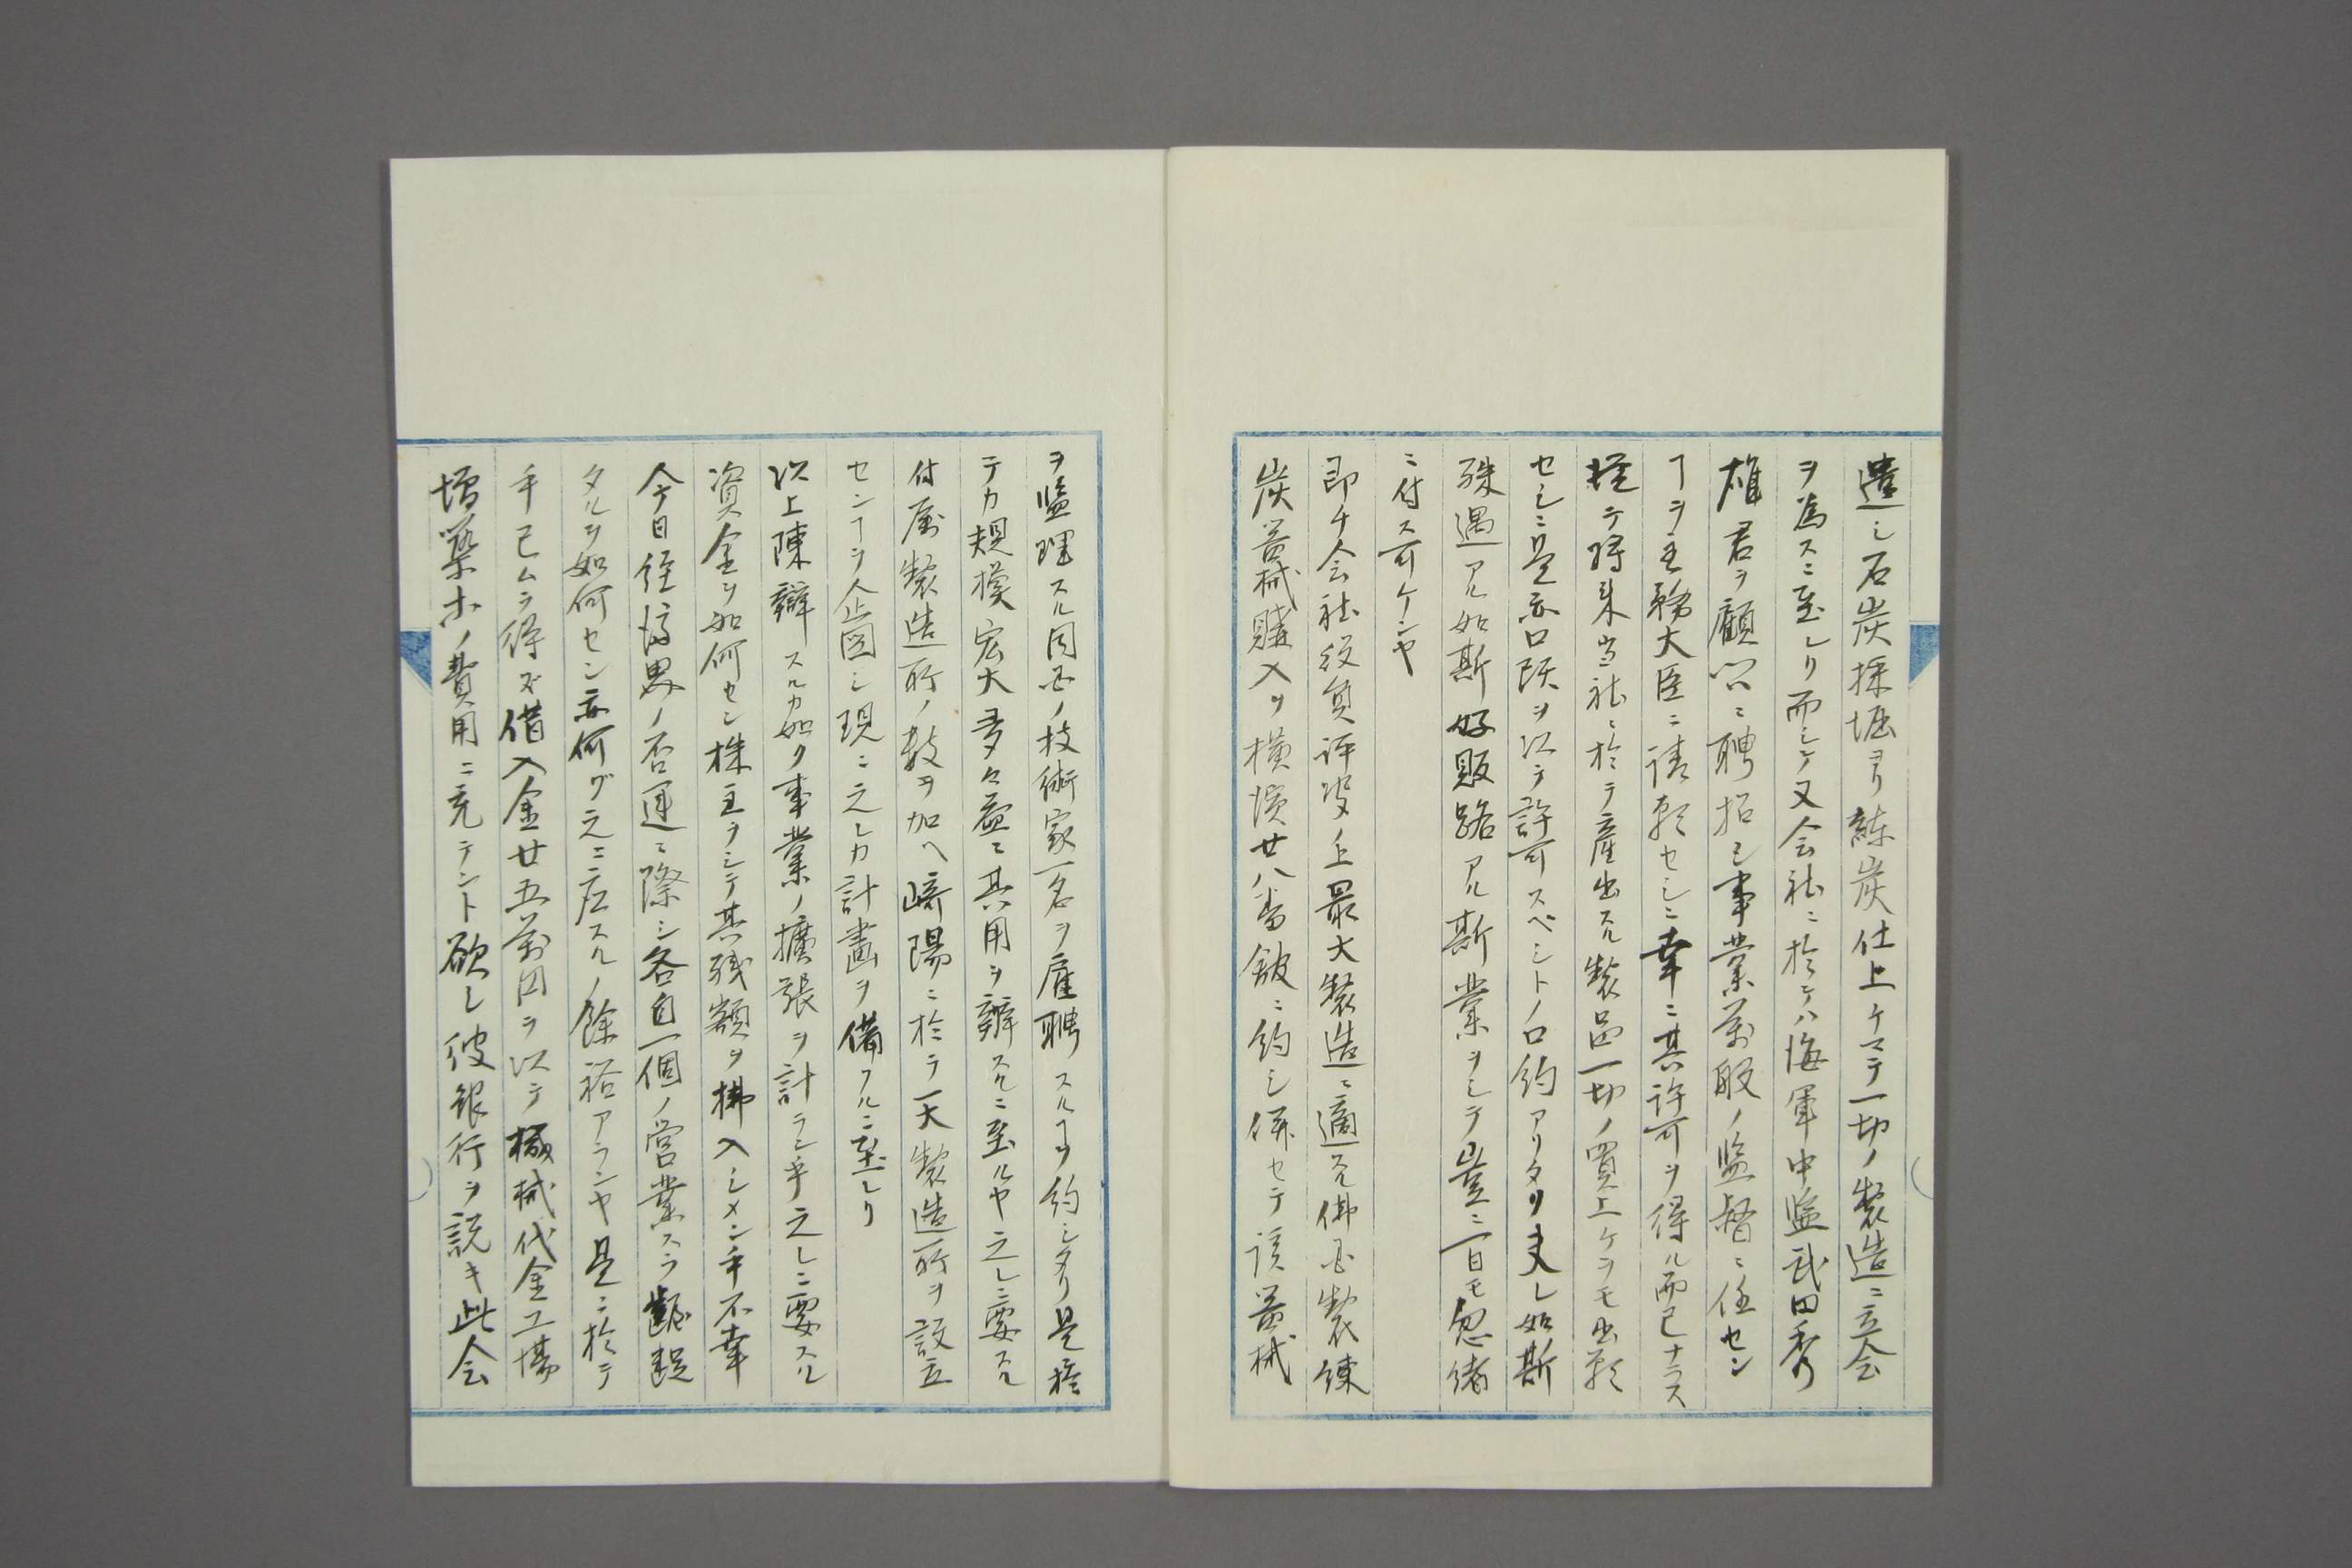 遣シ石炭採堀ヨリ練炭仕上ケマテ一切ノ製造ニ立会
ヲ為スニ至レリ而シテ又会社ニ於テハ海軍中監武田秀
雄君ヲ顧問ニ聘招シ事業萬般ノ監督ニ任セン
ヿヲ主務大臣ニ請願セシニ幸ニ其許可ヲ得ル而已ナラス
テ将来当社ニ於テ産出スル製品一切ノ買上ケヲモ出願
セシニ是亦口頭ヲ以テ許可スベシトノ口約アリタリ夫レ如斯
殊遇アル如斯好販路アル斯業ヲシテ豈ニ一日モ忽緒
ニ付ス可ケンヤ
即チ会社役員評決ノ上最大製造ニ適スル佛国製煉
炭器械購入ヲ横濱廿八番舘ニ約シ併セテ該器械
ヲ監理スル同国ノ技術家一名ヲ雇聘スルヿヲ約シタリ是於
テカ規模宏大多々益々其用ヲ辦スルニ至ルヤ之レニ要スル
付属製造所ノ数ヲ加ヘ崎陽ニ於テ一大製造所ヲ設立
センヿヲ企図シ現ニ之レカ計畵ヲ備フルニ至レリ
以上陳辯スルカ如ク事業ノ擴張ヲ計ランヤ之レニ要スル
資金ヲ如何セン株主ヲシテ其残額ヲ拂入シメン乎不幸
今日経済界ノ否運ニ際シ各自一個ノ営業スラ齟齬
タルヲ如何セン亦何ゾ之ニ応スルノ餘裕アランヤ是ニ於テ
乎已ムヲ得ズ借入金廿五萬円ヲ以テ機械代金工場
増築ホノ費用ニ充テント欲シ彼銀行ヲ説キ此会